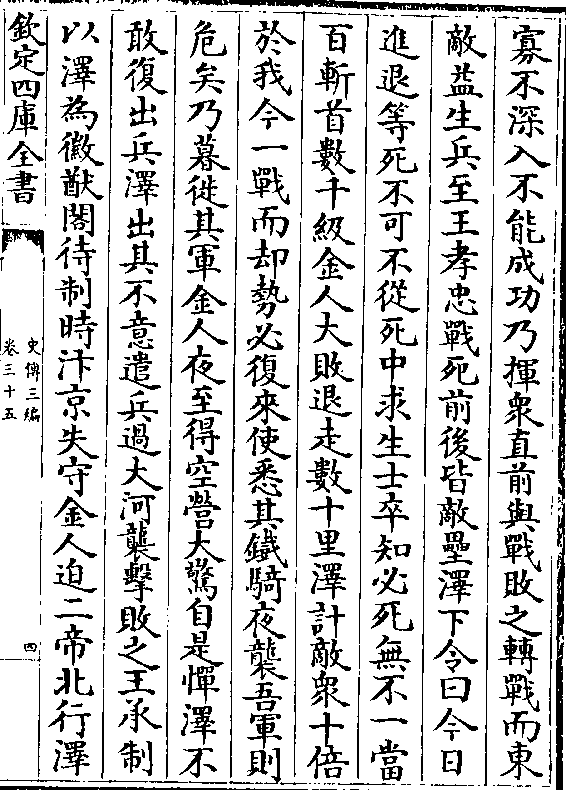 寡不深入不能成功乃揮衆直前與戰敗之轉戰而東
敵益生兵至王孝忠戰死前後皆敵壘澤下令曰今日
進退等死不可不從死中求生士卒知必死無不一當
百斬首數千級金人大敗退走數十里澤計敵衆十倍
於我今一戰而却勢必復來使悉其鐵騎夜襲吾軍則
危矣乃暮徙其軍金人夜至得空營大驚自是憚澤不
敢復出兵澤出其不意遣兵過大河襲擊敗之王承制
以澤為徽猷閣待制時汴京失守金人迫二帝北行澤
欽定四庫全書
史傳三編
卷三十五
四